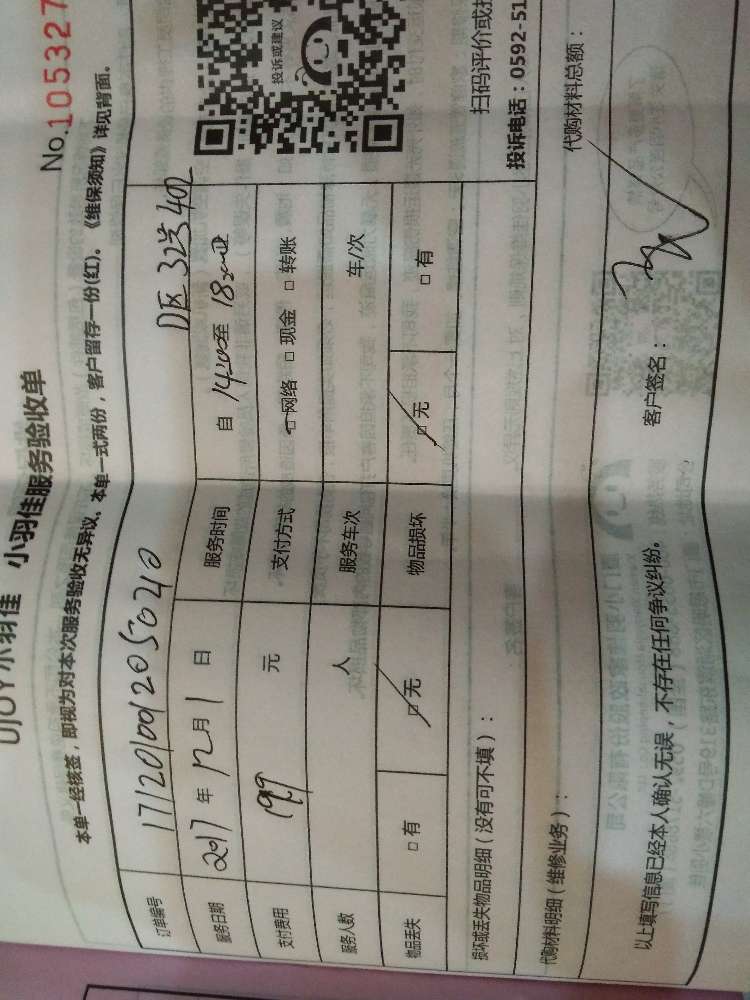 UJOY小羽佳 小羽佳服务验收单
No.105327
本单一经核签，即视为对本次服务验收无异议。本单一式两份，客户留存一份(红)。《维保须知》详见背面。
订单编号 D区32号402
服务日期 2017 年 12 月 1 日 服务时间 自 14:00至 18:00
支付费用 199 元 支付方式 □网络 □ 现金 □ 转账
服务人数 人 服务车次 车/次
物品丢失 □ 有 □ 无 物品损坏 □ 无 □ 有
损坏或丢失物品明细（没有可不填）：
代购材料明细（维修业务）： 代购材料总额：
以上填写信息已经本人确认无误，不存在任何争议纠纷。 客户签名：
投诉或建议
扫码评价或投
投诉电话：0592-51